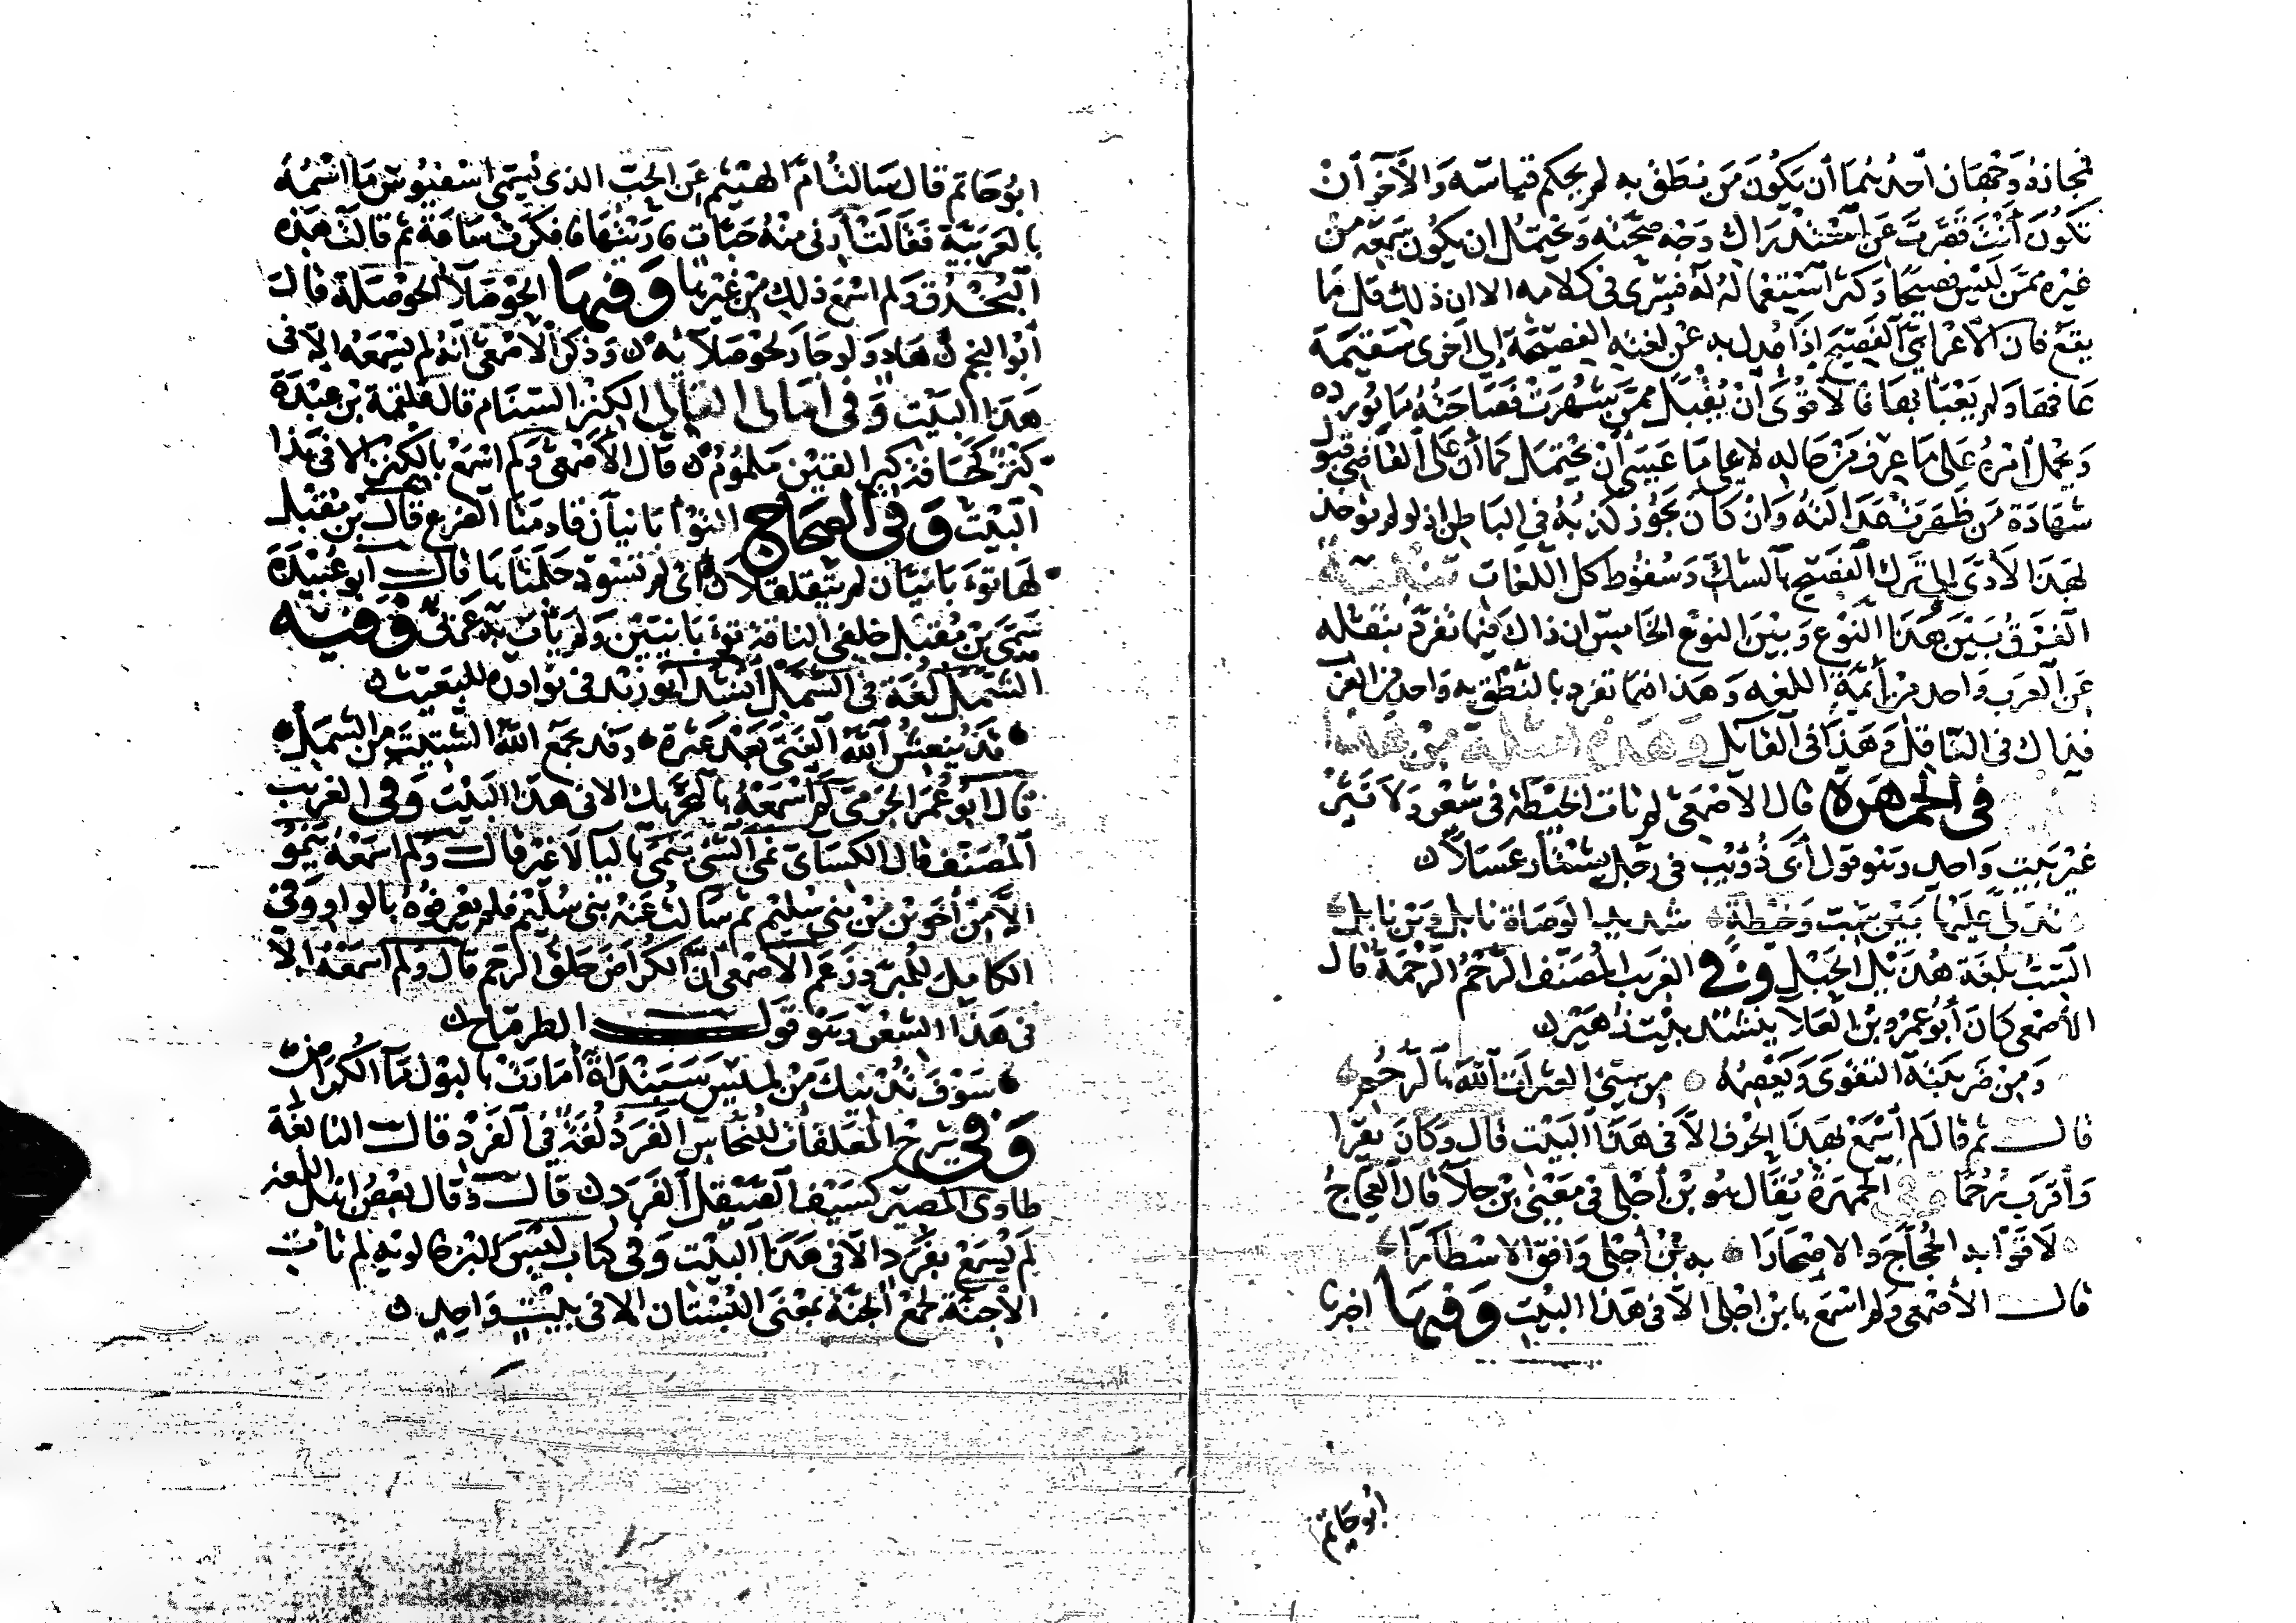 فمجازه وجهان احدهما أن يكون من نطق به لم يحكم قياسه والآخر أن
تكون أنت قصرت عن استدراك وجه صحته ويحتمل ان يكون سمعه من
غيره ممن ليس فصيحا وكثر استماعه له فسرى في كلامه الا ان ذلك قل ما
يقع فان الاعرابي الفصيح اذا عدل به عن لغته الفصيحة إلى اخرى سقيمة
عافها ولم يعبأ بها فالاقوى أن يقبل ممن شهرت فصاحته ما يورده
ويحمل أمره على ما عرف من حاله لا على ما عسى أن يحتمل كما أن على القاضي قبول
شهادة من ظهرت عدالته وان كان يجوز كذبه في الباطن اذ لو لم يؤخذ
بهذا لأدى إلى ترك الفصيح بالشك وسقوط كل اللغات تنبيه
الفرق بين هذا النوع وبين النوع الخامس ان ذاك فيما تفرد بنقله
عن العرب واحد من أئمة اللغه وهذا فيما تفرد بالنطق به واحد من العرب
فذاك في الناقل وهذا في القايل وهذه امثلة من هذا
في الجمهرة قال الاصمعي لم تات الخيطة في شعر ولا نثر
غير بيت واحد وهو قول أبي ذؤيب في رجل يشتار عسلا
تدلى عليها بين سب وخيطة شديد الوصاة نابل وابن نابل
السب بلغة هذيل الحبل وفي الغريب المصنف الرحم الرحمة قال
الأصمعي كان أبو عمرو بن العلا ينشد بيت زهير
ومن ضريبته التقوى ويعصمه من سيئ العثرات الله بالرحم
قال ثم قال لم أسمع بهذا الحرف الا في هذا البيت قال وكان يقرا
وأقرب رحما وفي الجمهرة يقال هو بن أجلى في معنى بن جلا قال العجاج
لاقوا به الحجاج والاصحارا به بن أجلى وافق الاسفارا
قال الأصمعي ولم اسمع بابن اجلى الا في هذا البيت وفيها اخبرنا
ابو حاتم
ابو حاتم قال سالت ام الهيثم عن الحب الذي يسمى اسفيوش ما اسمه
بالعربية فقالت أرني منه حبات فاريتها فافكرت ساعة ثم قالت هذه
البخدق ولم اسمع ذلك من غيرها وفيها الحوصلا الحوصلة قال
أبو النجم هاد ولو جار لحوصلائه وذكر الاصمعي أنه لم يسمعه إلا في
هذا البيت وفي امالي القالي الكتر السنام قال علقمة بن عبدة
كتر كحافة كير القين ملموم قال الأصمعي ولم اسمع بالكتر الا في هذا
البيت وفي الصحاح التوأبانيان قادمتا الضرع قال بن مقبل
لها توءبانيان لم يتفلفلا أي لم تسود حلمتاها قال أبو عبيدة
سمى بن مقبل خلفي الناقة توءبانيين ولم يات به عربي وفيه
الشمل لغة في الشمل انشد أبو زيد في نوادره للبعيث
قد ينعش الله الفتى بعد عثرة وقد يجمع الله الشتيت من الشمل
قال أبو عمر الجرمي لم أسمعه بالتحريك الا في هذا البيت وفي الغريب
المصنف قال الكسائي نمى الشئ ينمى باليا لا غير قال ولم اسمعه ينمو
الا من أخوين من بني سليم ثم سالت عنه بني سليم فلم يعرفوه بالواو وفي
الكامل للمبرد زعم الاصمعي ان الكراض حلق الرحم قال ولم اسمعه الا
في هذا الشعر وهو قول الطرماح
سوف تدنيك من لميس سبنداة أمارت بالبول ما الكراض
وفي شرح المعلقات للنحاس الفرد لغة في الفرد قال النابغة
طاوى المصير كسيف الصيقل الفرد قال وقال بعض اهل اللغه
لم يسمع بفرد الا في هذا البيت وفي كتاب ليس لابن خالويه لم تات
الأجنة لجمع الجنة بمعنى البستان الا في بيت واحد